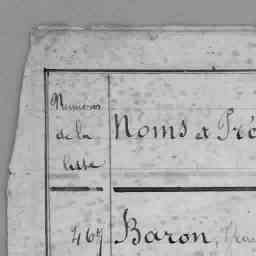 Numéros
de la
liste
Noms et Pré
467 Baron,